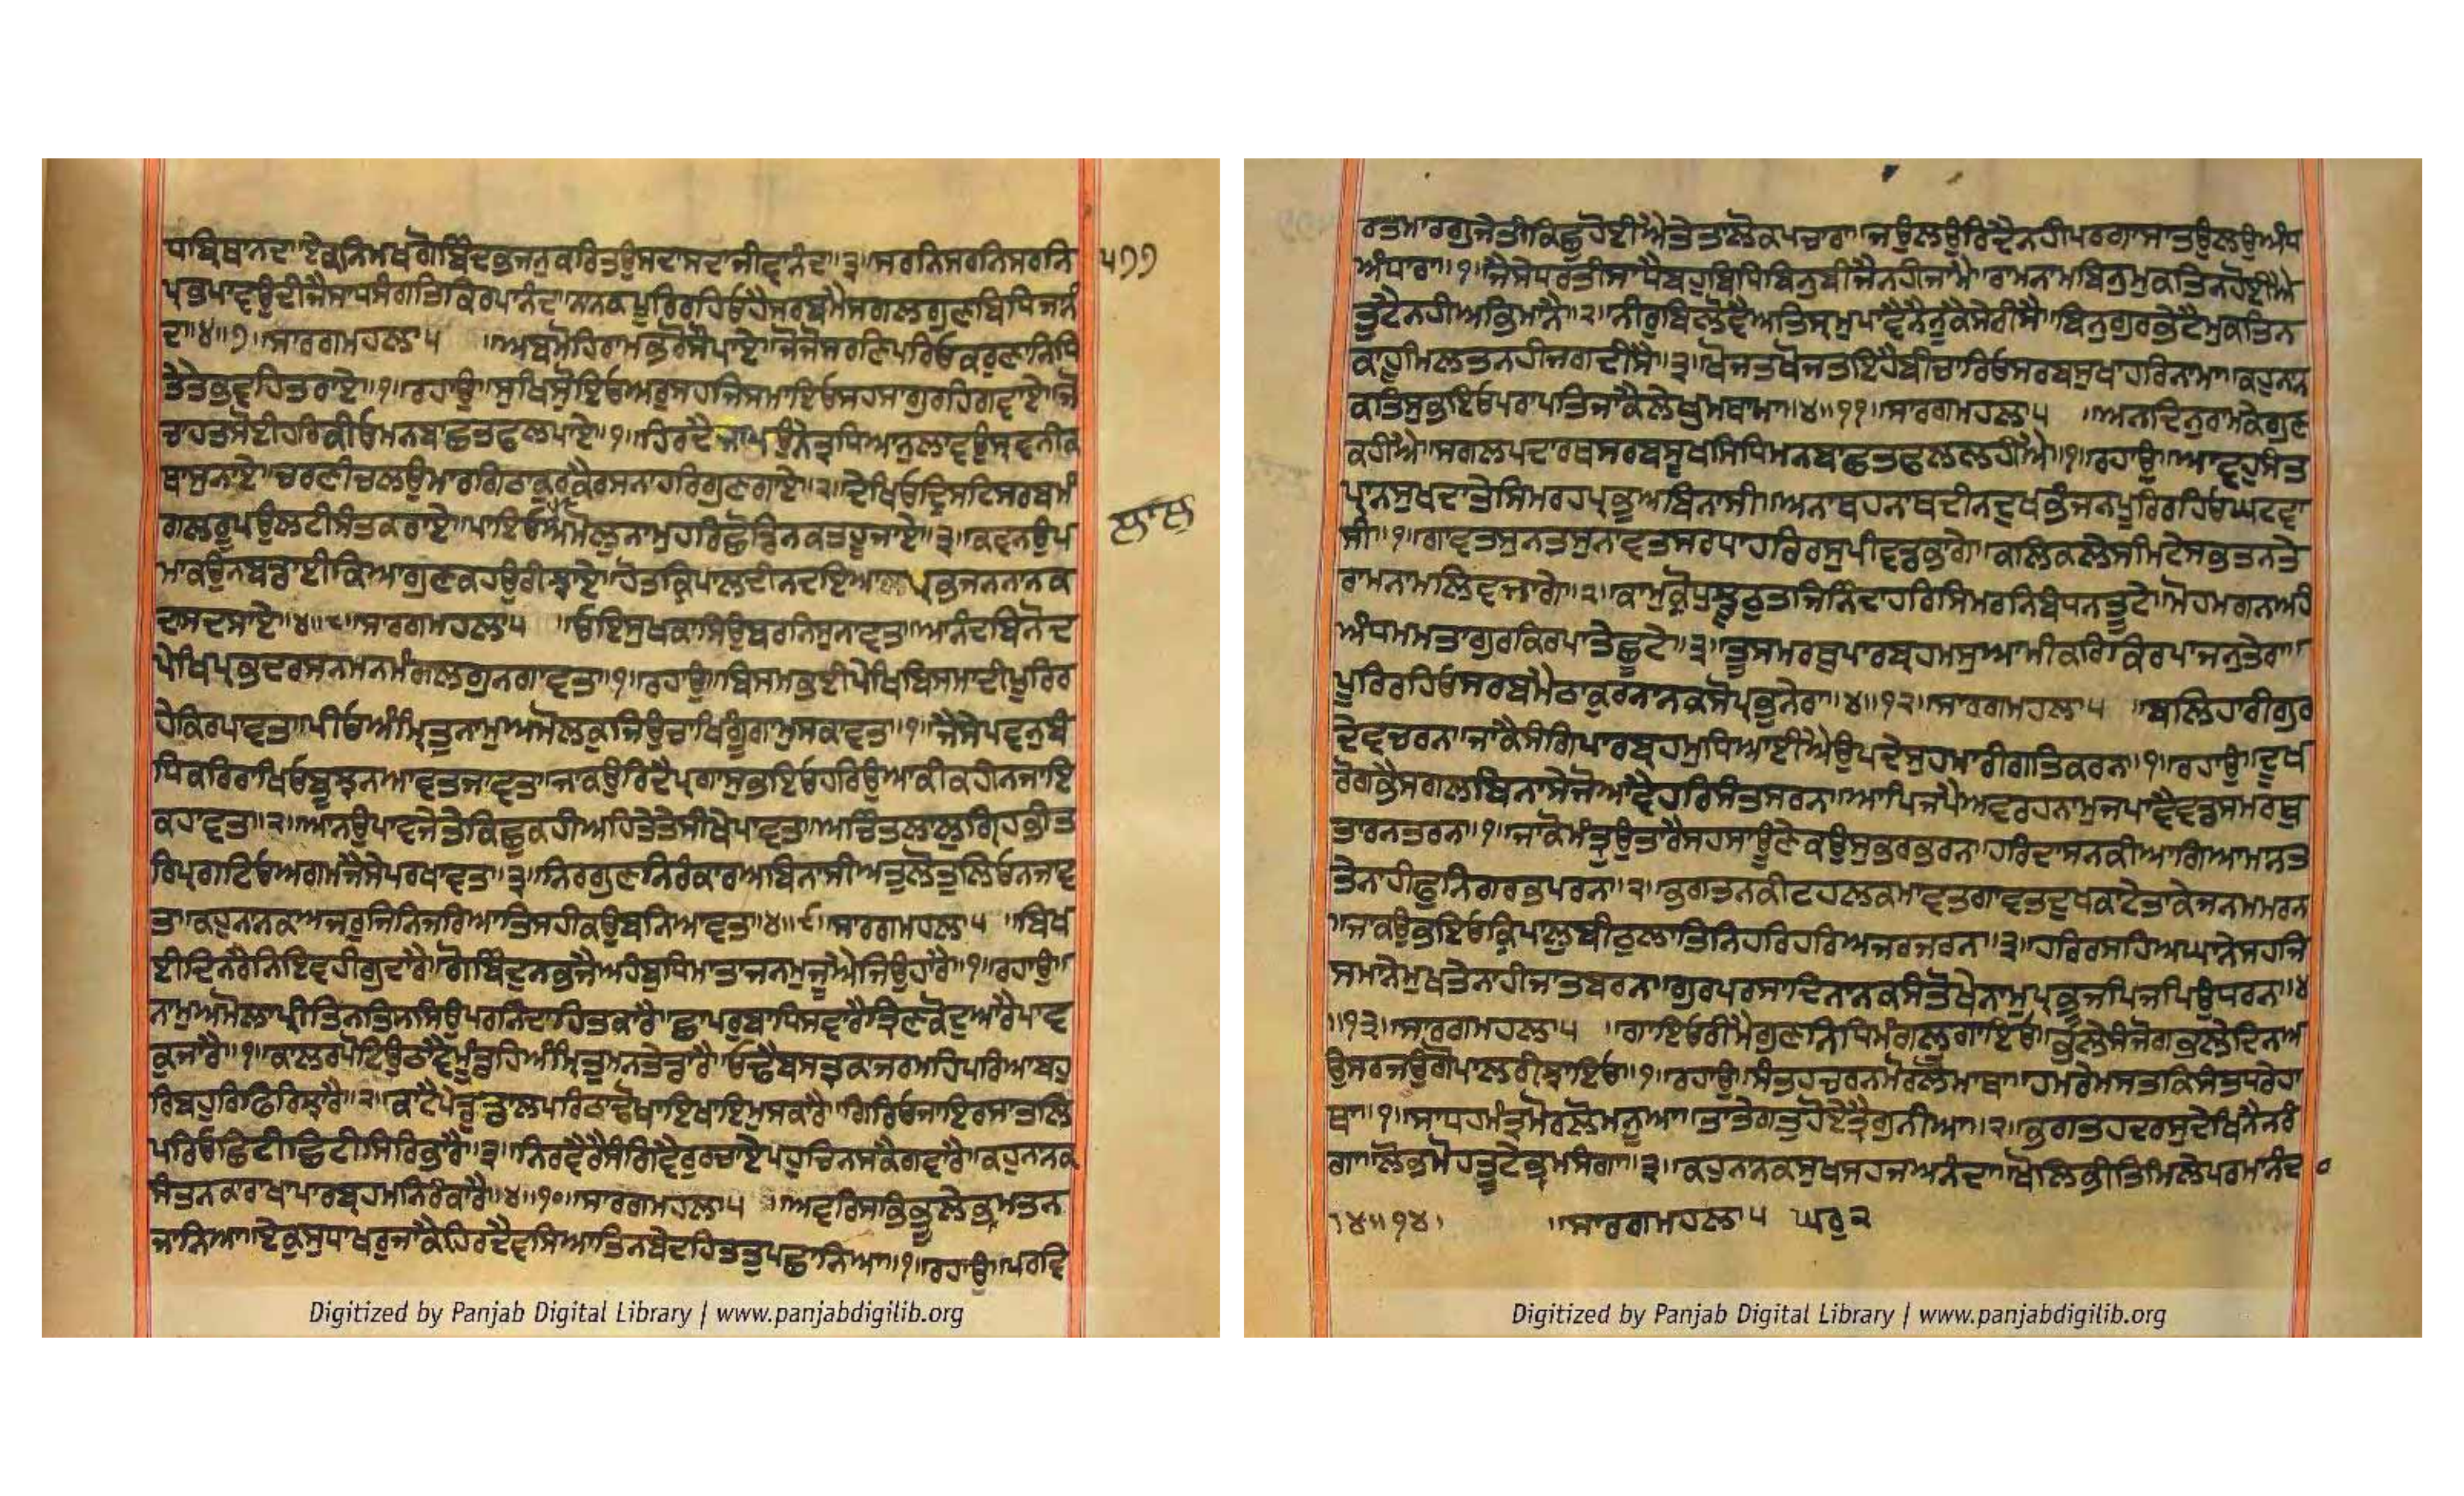 ਧਬਿਥਾਨਦਾ॥ਏਕੁਨਿਮਖਗੋਬਿੰਦਭਜਨੁਕਰਿਤਉਸਦਾਸਦਾਜੀਵਾਨੰਦਾ॥੩॥ਸਰਨਿਸਰਨਿਸਰਨਿ ੫੭੭
ਪ੍ਰਭਪਾਵਉਦੀਜੈਸਾਧਸੰਗਤਿਕਿਰਪਾਨੰਦਾ॥ਨਾਨਕਪੂਰਿਰਹਿਓਹੈਸਰਬਮੈਸਗਲਗੁਣਬਿਧਿਜਾਨੰ
ਦਾ॥੪॥੭॥ਸਾਰਗਮਹਲਾ੫ ॥ਅਬਮੋਹਿਰਾਮਭਰੋਸੈਪਾਏ॥ਜੋਜੋਸਰਣਿਪਰਿਓਕਰੁਣਾਨਿਧਿ
ਤੇਤੇਭਵਹਿਤਰਾਏ॥੧॥ਰਹਾਉ॥ਸੁਖਿਸੋਇਓਅਰੁਸਹਜਿਸਮਾਇਓਸਹਸਾਗੁਰਹਿਗਵਾਏ॥ਜੋ
ਚਾਹਤਸੋਈਹਰਿਕੀਓਮਨਬਾਛਤਫਲਪਾਏ॥੧॥ਹਿਰਦੈਜਾਪਉਨੇਤ੍ਰਧਿਆਨੁਲਾਵਉਸ੍ਰਵਨੀਕ
ਥਾਸੁਨਾਏ॥ਚਰਣੀਚਲਉਮਾਰਗਿਠਾਕੁਰਕੈਰਸਨਾਹਰਿਗੁਣਗਾਏ॥੨॥ਦੇਖਿਓਦ੍ਰਿਸਟਿਸਰਬਮੰ
ਗਲਰੂਪਉਲਟੀਸੰਤਕਰਾਏ॥ਪਾਇਓਅਮੋਲੁਨਾਮੁਹਰਿਛੋਡਿਨਕਤਹੂਜਾਏ॥੩॥ਕਵਨਉਪ
ਮਾਕਉਨਬਡਾਈਕਿਆਗੁਣਕਹਉਰੀਝਾਏ॥ਹੋਤਕ੍ਰਿਪਾਲਦੀਨਦਇਆਲਪ੍ਰਭਜਨਨਾਨਕ
ਦਾਸਦਸਾਏ॥੪॥੮॥ਸਾਰਗਮਹਲਾ੫ ॥ਓਇਸੁਖਕਾਸਿਉਬਰਨਿਸੁਨਾਵਤ॥ਆਨੰਦਬਿਨੋਦ
ਪੇਖਿਪ੍ਰਭਦਰਸਨਮਨਮੰਗਲਗੁਨਗਾਵਤ॥੧॥ਰਹਾਉ॥ਬਿਸਮਭਈਪੇਖਿਬਿਸਮਾਦੀਪੂਰਿਰ
ਹੇਕਿਰਪਾਵਤ॥ਪੀਓਅੰਮ੍ਰਿਤੁਨਾਮੁਅਮੋਲਕੁਜਿਉਚਾਖਿਗੂੰਗਾਮੁਸਕਾਵਤ॥੧॥ਜੈਸੇਪਵਨੁਬੰ
ਧਿਕਰਿਰਾਖਿਓਬੂਝਨਆਵਤਜਾਵਤ॥ਜਾਕਉਰਿਦੈਪ੍ਰਗਾਸੁਭਇਓਹਰਿਉਆਕੀਕਹੀਨਜਾਇ
ਕਹਾਵਤ॥੨॥ਆਨਉਪਾਵਜੇਤੇਕਿਛੁਕਹੀਅਹਿਤੇਤੇਸੀਖੇਪਾਵਤ॥ਅਚਿੰਤਲਾਲੁਗ੍ਰਿਹਭੀਤ
ਰਿਪ੍ਰਗਟਿਓਅਗਮਜੈਸੇਪਰਖਾਵਤ॥੩॥ਨਿਰਗੁਣਨਿਰੰਕਾਰਅਬਿਨਾਸੀਅਤੁਲੋਤੁਲਿਓਨਜਾਵ
ਤ॥ਕਹੁਨਾਨਕਅਜਰੁਜਿਨਿਜਰਿਆਤਿਸਹੀਕਉਬਨਿਆਵਤ॥੪॥੯॥ਸਾਰਗਮਹਲਾ੫ ॥ਬਿਖ
ਈਦਿਨੁਰੈਨਿਇਵਹੀਗੁਦਾਰੈ॥ਗੋਬਿੰਦੁਨਭਜੈਅਹੰਬੁਧਿਮਾਤਾਜਨਮੁਜੂਐਜਿਉਹਾਰੈ॥੧॥ਰਹਾਉ॥
ਨਾਮੁਅਮੋਲਾਪ੍ਰੀਤਿਨਤਿਸਸਿਉਪਰਨਿੰਦਾਹਿਤਕਾਰੈ॥ਛਾਪਰੁਬਾਧਿਸਵਾਰੈਤ੍ਰਿਣਕੋਦੁਆਰੈਪਾਵ
ਕੁਜਾਰੈ॥੧॥ਕਾਲਰਪੋਟਉਠਾਵੈਮੂੰਡਹਿਅੰਮ੍ਰਿਤੁਮਨਤੇਡਾਰੈ॥ਓਢੈਬਸਤ੍ਰਕਾਜਰਮਹਿਪਰਿਆਬਹੁ
ਰਿਬਹੁਰਿਫਿਰਿਝਾਰੈ॥੨॥ਕਾਟੈਪੇਡੁਡਾਲਪਰਿਠਾਢੌਖਾਇਖਾਇਮੁਸਕਾਰੈ॥ਗਿਰਿਓਜਾਇਰਸਾਤਲਿ
ਪਰਿਓਛਿਟੀਛਿਟੀਸਿਰਿਭਾਰੈ॥੩॥ਨਿਰਵੈਰੈਸੰਗਿਵੈਰੁਰਚਾਏਪਹੁਚਿਨਸਕੈਗਵਾਰੈ॥ਕਹੁਨਾਨਕ
ਸੰਤਨਕਾਰਾਖਾਪਾਰਬ੍ਰਹਮਨਿਰੰਕਾਰੈ॥੪॥੧੦॥ਸਾਰਗਮਹਲਾ੫ ॥ਅਵਰਿਸਭਿਭੂਲੇਭ੍ਰਮਤਨ
ਜਾਨਿਆ॥ਏਕੁਸੁਧਾਖਰੁਜਾਕੈਹਿਰਦੈਵਸਿਆਤਿਨਬੇਦਹਿਤਤੁਪਛਾਨਿਆ॥੧॥ਰਹਾਉ॥ਪਰਵਿ
ਰਤਮਾਰਗੁਜੇਤੀਕਿਛੁਹੋਈਐਤੇਤਾਲੋਕਪਚਾਰਾ॥ਜਉਲਉਰਿਦੈਨਹੀਪਰਗਾਸਾਤਉਲਉਅੰਧ
ਅੰਧਾਰਾ॥੧॥ਜੈਸੇਧਰਤੀਸਾਧੈਬਹੁਬਿਧਿਬਿਨੁਬੀਜੈਨਹੀਜਾਮੈ॥ਰਾਮਨਾਮਬਿਨੁਮੁਕਤਿਨਹੋਈਐ
ਤੁਟੈਨਹੀਅਭਿਮਾਨੈ॥੨॥ਨੀਰੁਬਿਲੋਵੈਅਤਿਸ੍ਰਮੁਪਾਵੈਨੈਨੂਕੈਸੇਰੀਸੈ॥ਬਿਨੁਗੁਰਭੇਟੈਮੁਕਤਿਨ
ਕਾਹੂਮਿਲਤਨਹੀਜਗਦੀਸੈ॥੩॥ਖੋਜਤਖੋਜਤਇਹੈਬੀਚਾਰਿਓਸਰਬਸੁਖਾਹਰਿਨਾਮਾ॥ਕਹੁਨਾਨ
ਕਤਿਸੁਭਇਓਪਰਾਪਤਿਜਾਕੈਲੇਖੁਮਥਾਮਾ॥੪॥੧੧॥ਸਾਰਗਮਹਲਾ੫ ॥ਅਨਦਿਨੁਰਾਮਕੇਗੁਣ
ਕਹੀਐ॥ਸਗਲਪਦਾਰਥਸਰਬਸੂਖਸਿਧਿਮਨਬਾਛਤਫਲਲਹੀਐ॥੧॥ਰਹਾਉ॥ਆਵਹੁਸੰਤ
ਪ੍ਰਾਨਸੁਖਦਾਤੇਸਿਮਰਹਪ੍ਰਭੁਅਬਿਨਾਸੀ॥ਅਨਾਥਹਨਾਥਦੀਨਦੁਖਭੰਜਨਪੂਰਿਰਹਿਓਘਟਵਾ
ਸੀ॥੧॥ਗਾਵਤਸੁਨਤਸੁਨਾਵਤਸਰਧਾਹਰਿਰਸੁਪੀਵਡਭਾਗੇ॥ਕਲਿਕਲੇਸਮਿਟੇਸਭਤਨਤੇ
ਰਾਮਨਾਮਲਿਵਜਾਗੇ॥੨॥ਕਾਮੁਕ੍ਰੋਧੁਝੂਠੁਤਜਿਨਿੰਦਾਹਰਿਸਿਮਰਨਿਬੰਧਨਤੂਟੇ॥ਮੋਹਮਗਨਅਹੰ
ਅੰਧਮਮਤਾਗੁਰਕਿਰਪਾਤੇਛੂਟੇ॥੩॥ਤੂਸਮਰਥੁਪਾਰਬ੍ਰਹਮਸੁਆਮੀਕਰਿਕਿਰਪਾਜਨੁਤੇਰਾ॥
ਪੂਰਿਰਹਿਓਸਰਬਮੈਠਾਕੁਰਨਾਨਕਸੋਪ੍ਰਭੁਨੇਰਾ॥੪॥੧੨॥ਸਾਰਗਮਹਲਾ੫ ॥ਬਲਿਹਾਰੀਗੁਰ
ਦੇਵਚਰਨ॥ਜਾਕੈਸੰਗਿਪਾਰਬ੍ਰਹਮੁਧਿਆਈਐਉਪਦੇਸੁਹਮਾਰੀਗਤਿਕਰਨ॥੧॥ਰਹਾਉ॥ਦੂਖ
ਰੋਗਭੈਸਗਲਬਿਨਾਸੇਜੋਆਵੈਹਰਿਸੰਤਸਰਨ॥ਆਪਿਜਪੈਅਵਰਹਨਾਮੁਜਪਾਵੈਵਡਸਮਰਥੁ
ਤਾਰਨਤਰਨ॥੧॥ਜਾਕੋਮੰਤ੍ਰੁਉਤਾਰੈਸਹਸਾਊਣੇਕਉਸੁਭਰਭਰਨ॥ਹਰਿਦਾਸਨਕੀਆਗਿਆਮਾਨਤ
ਤੇਨਾਹੀਫੁਨਿਗਰਭਪਰਨ॥੨॥ਭਗਤਨਕੀਟਹਲਕਮਾਵਤਗਾਵਤਦੁਖਕਾਟੇਤਾਕੇਜਨਮਮਰਨ
॥ਜਾਕਉਭਇਓਕ੍ਰਿਪਾਲੁਬੀਠੁਲਾਤਿਨਿਹਰਿਹਰਿਅਜਰਜਰਨ॥੩॥ਹਰਿਰਸਹਿਅਘਾਨੇਸਹਜਿ
ਸਮਾਨੇਮੁਖਤੇਨਾਹੀਜਾਤਬਰਨ॥ਗੁਰਪਰਸਾਦਿਨਾਨਕਸੰਤੋਖੇਨਾਮੁਪ੍ਰਭੂਜਪਿਜਪਿਉਧਰਨ॥੪
॥੧੩॥ਸਾਰਗਮਹਲਾ੫ ॥ਗਾਇਓਰੀਮੈਗੁਣਨਿਧਿਮੰਗਲੁਗਾਇਓ॥ਭਲੇਸੰਜੋਗਭਲੇਦਿਨਅ
ਉਸਰਜਉਗੋਪਾਲਰੀਝਾਇਓ॥੧॥ਰਹਾਉ॥ਸੰਤਹਚਰਨਮੋਰਲੋਮਾਥਾ॥ਹਮਰੇਮਸਤਕਿਸੰਤਧਰੇਹਾ
ਥਾ॥੧॥ਸਾਧਹਮੰਤ੍ਰੁਮੋਰਲੋਮਨੂਆ॥ਤਾਤੇਗਤੁਹੋਏਤ੍ਰੈਗੁਨੀਆ॥੨॥ਭਗਤਹਦਰਸੁਦੇਖਿਨੈਨਰੰ
ਗਾ॥ਲੋਭਮੋਹਤੂਟੇਭ੍ਰਮਸੰਗਾ॥੩॥ਕਹੁਨਾਨਕਸੁਖਸਹਜਅਨੰਦਾ॥ਖੋਲਿਭੀਤਿਮਿਲੇਪਰਮਾਨੰਦਾ
॥੪॥੧੪॥ ॥ਸਾਰਗਮਹਲਾ੫ ਘਰੁ੨
Digitized by Panjab Digital Library | www.panjabdigilib.org
Digitized by Panjab Digital Library | www.panjabdigilib.org